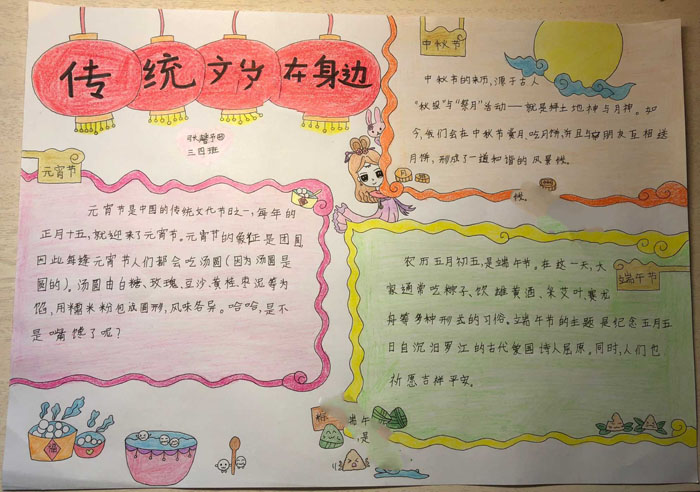 传统文岁在身边
三四班
元宵节
元宵节是中国的传统文化节日之一,每年的
正月十五,就迎来了元宵节。元宵节的象征是团圆
因此每逢元宵节人们都会吃汤圆(因为汤圆是
圆的)。汤圆由白糖、玫瑰、豆沙、黄桂、枣泥等为
馅,用糯米粉包成圆形,风味各异。哈哈,是不
是嘴馋了呢?
中秋节
中秋节的来历,源于古人
“秋报”与“祭月”活动——就是拜土地神与月神。如
今,我们会在中秋节赏月、吃月饼,并且与朋友互相送
月饼,形成了一道和谐的风景线。
端午节
农历五月初五,是端午节。在这一天,大
家通常吃粽子、饮雄黄酒、采艾叶、赛龙
舟等多种形式的习俗。端午节的主题是纪念五月五
日自沉汨罗江的古代爱国诗人屈原。同时,人们也
祈愿吉祥平安。
福
端午
是